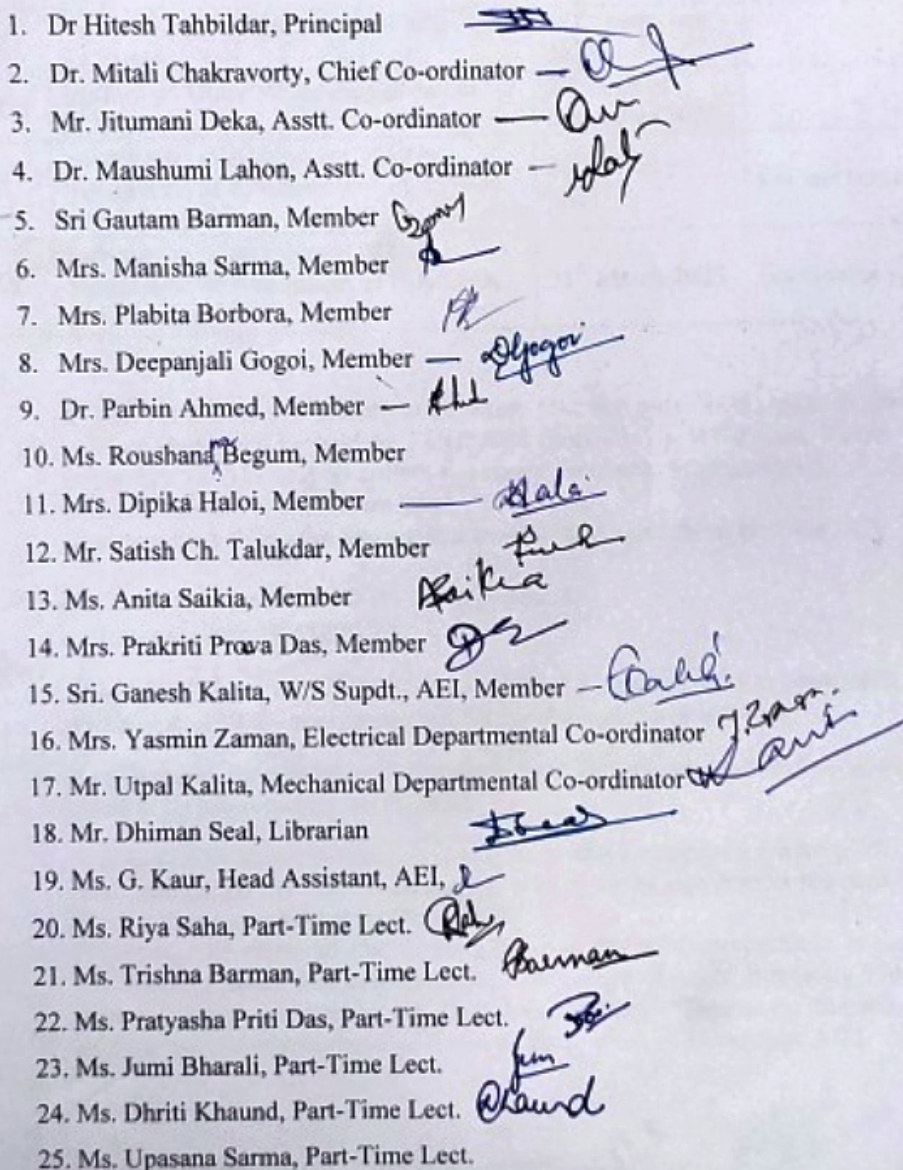 1. Dr Hitesh Tahbildar, Principal
2. Dr. Mitali Chakravorty, Chief Co-ordinator —
3. Mr. Jitumani Deka, Asstt. Co-ordinator —
4. Dr. Maushumi Lahon, Asstt. Co-ordinator —
5. Sri Gautam Barman, Member
6. Mrs. Manisha Sarma, Member
7. Mrs. Plabita Borbora, Member
8. Mrs. Deepanjali Gogoi, Member — DGogoi
9. Dr. Parbin Ahmed, Member —
10. Ms. Roushanara Begum, Member
11. Mrs. Dipika Haloi, Member —
12. Mr. Satish Ch. Talukdar, Member
13. Ms. Anita Saikia, Member ASaikia
14. Mrs. Prakriti Prova Das, Member
15. Sri. Ganesh Kalita, W/S Supdt., AEI, Member —
16. Mrs. Yasmin Zaman, Electrical Departmental Co-ordinator
17. Mr. Utpal Kalita, Mechanical Departmental Co-ordinator
18. Mr. Dhiman Seal, Librarian
19. Ms. G. Kaur, Head Assistant, AEI,
20. Ms. Riya Saha, Part-Time Lect.
21. Ms. Trishna Barman, Part-Time Lect. Barman
22. Ms. Pratyasha Priti Das, Part-Time Lect.
23. Ms. Jumi Bharali, Part-Time Lect.
24. Ms. Dhriti Khaund, Part-Time Lect. Khaund
25. Ms. Upasana Sarma, Part-Time Lect.